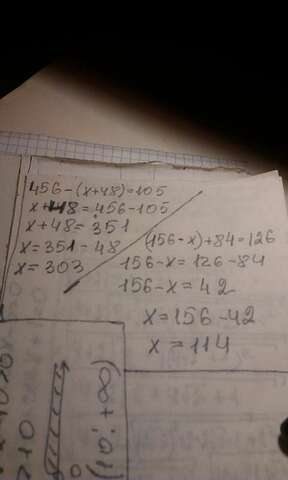 456-(x+48)=105
x+48=456-105
x+48=351
x=351-48
x=303
(156-x)+84=126
156-x=126-84
156-x=42
x=156-42
x=114